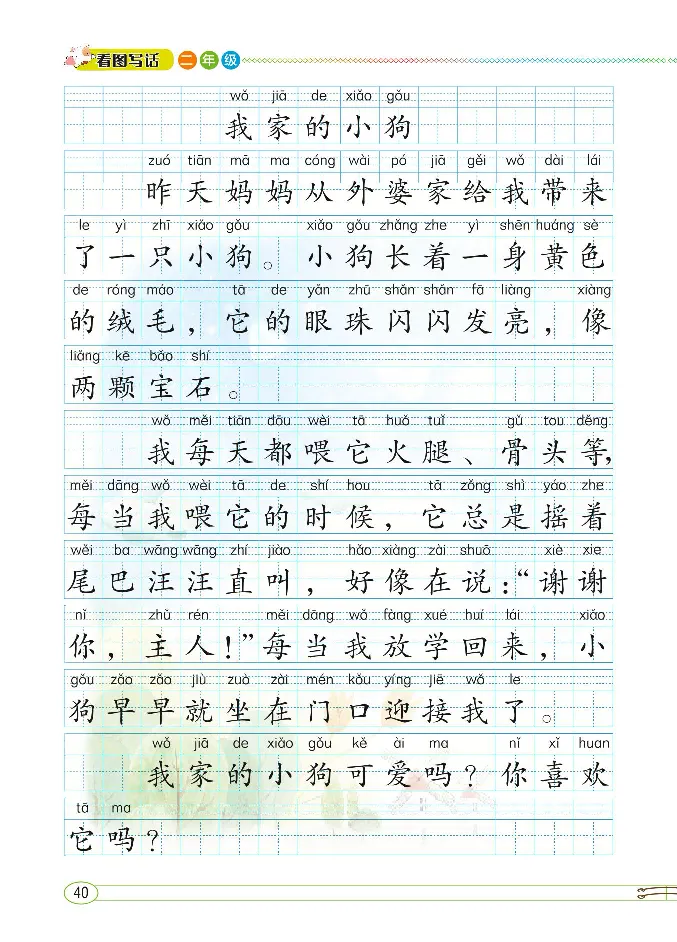 看图写话 二年级
wǒ jiā de xiǎo gǒu
我家的小狗
zuó tiān mā ma cóng wài pó jiā gěi wǒ dài lái
昨天妈妈从外婆家给我带来
le yì zhī xiǎo gǒu xiǎo gǒu zhǎng zhe yì shēn huáng sè
了一只小狗。小狗长着一身黄色
de róng máo tā de yǎn zhū shǎn shǎn fā liàng xiàng
的绒毛，它的眼珠闪闪发亮，像
liǎng kē bǎo shí
两颗宝石。
wǒ měi tiān dōu wèi tā huǒ tuǐ gǔ tou děng
我每天都喂它火腿、骨头等，
měi dāng wǒ wèi tā de shí hou tā zǒng shì yáo zhe
每当我喂它的时候，它总是摇着
wěi ba wāng wāng zhí jiào hǎo xiàng zài shuō xiè xie
尾巴汪汪直叫，好像在说：“谢谢
nǐ zhǔ rén měi dāng wǒ fàng xué huí lái xiǎo
你，主人！”每当我放学回来，小
gǒu zǎo zǎo jiù zuò zài mén kǒu yíng jiē wǒ le
狗早早就坐在门口迎接我了。
wǒ jiā de xiǎo gǒu kě ài ma nǐ xǐ huan
我家的小狗可爱吗？你喜欢
tā ma
它吗？
40